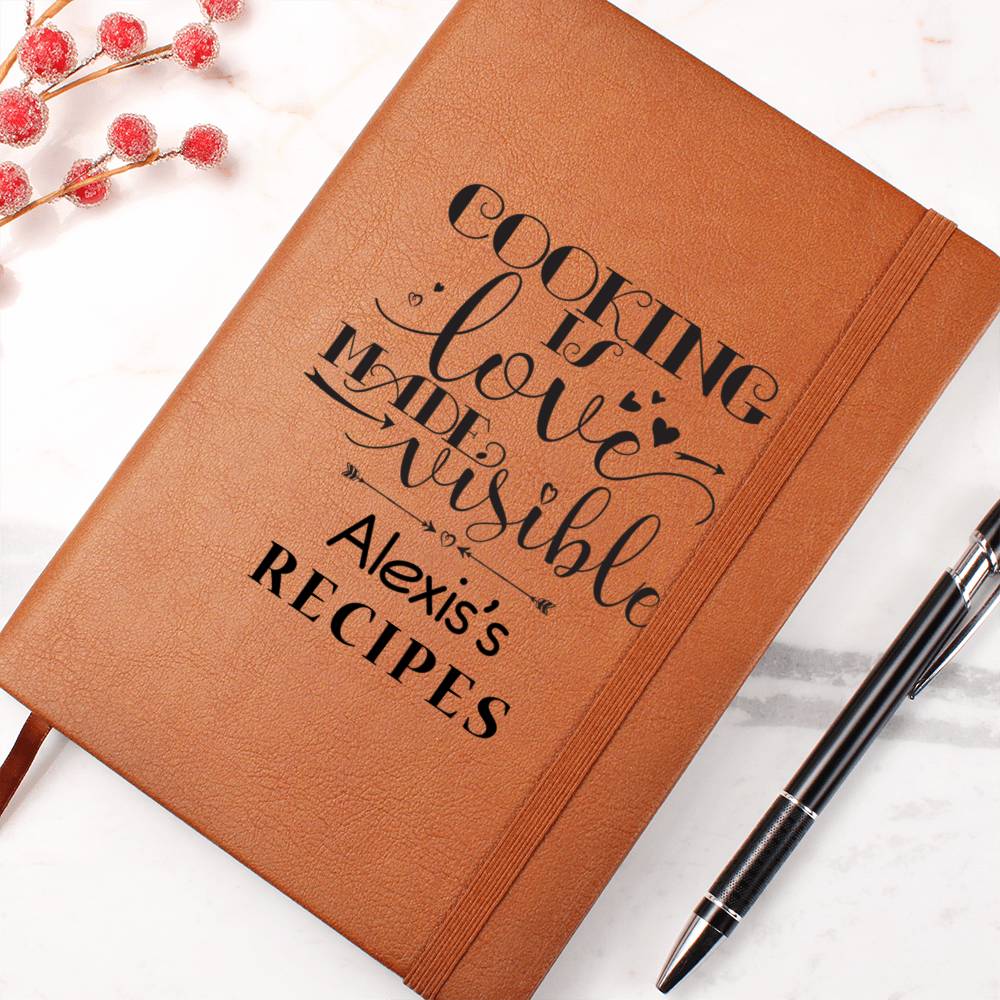 COOKING
IS
love
MADE
visible
Alexis's
RECIPES